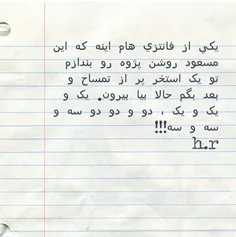 يکي از فانتزي هام اينه که اين
مسعود روشن پژوه رو بندازم
تو يک استخر پر از تمساح و
بعد بگم حالا بيا بيرون. يک و
يک و يک ، دو و دو دو سه و
سه و سه!!!
h.r